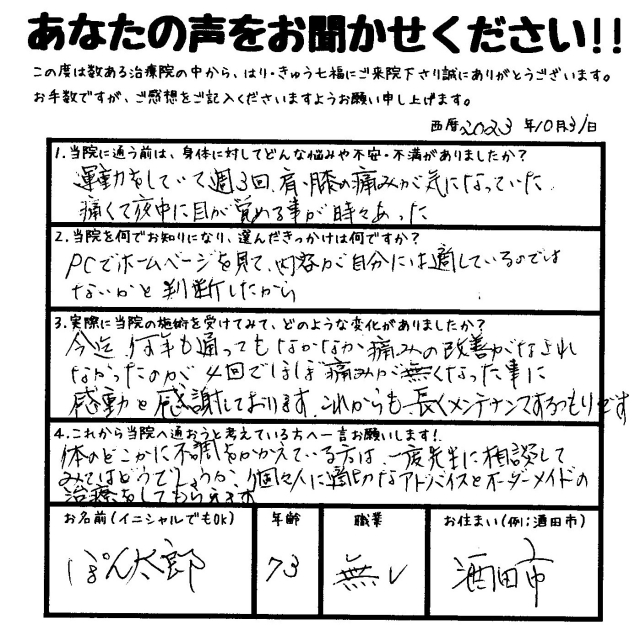 あなたの声をお聞かせください!!
この度は数ある治療院の中から、はり・きゅう七福にご来院下さり誠にありがとうございます。
お手数ですが、ご感想をご記入くださいますようお願い申し上げます。
西暦2023年10月31日
1.当院に通う前は、身体に対してどんな悩みや不安・不満がありましたか?
運動をしていて週3回、肩、膝の痛みが気になっていた
痛くて夜中に目が覚める事が時々あった
2.当院を何でお知りになり、選んだきっかけは何ですか?
PCでホームページを見て、内容が自分には適しているのでは
ないかと判断したから
3.実際に当院の施術を受けてみて、どのような変化がありましたか?
今迄、何年も通ってもなかなか痛みの改善がなされ
なかったのが、4回でほぼ痛みが無くなった事に
感動と感謝しております。これからも長くメンテナンスするつもりです
4.これから当院へ通おうと考えている方へ一言お願いします!
体のどこかに不調をかかえている方は、一度先生に相談して
みてはどうでしょうか、個々人に適切なアドバイスとオーダーメイドの
治療をしてもらえます
お名前(イニシャルでもOK) 年齢 職業 お住まい(例:酒田市)
ぽん太郎 73 無し 酒田市